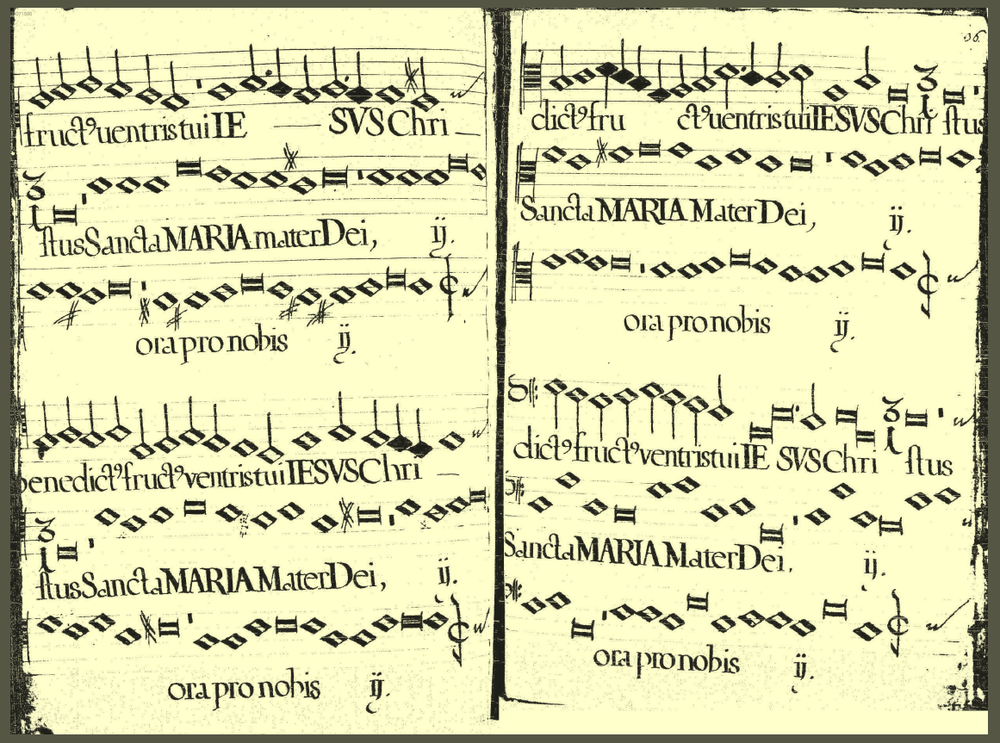 fructꝰ uentris tui IE SVS Chri
stus Sancta MARIA mater Dei, ij.
ora pro nobis ij.
benedictꝰ fructꝰ ventris tui IESVS Chri
stus Sancta MARIA Mater Dei, ij.
ora pro nobis ij.
36.
dictꝰ fru ctꝰ uentris tui IESVS Chri stus
Sancta MARIA Mater Dei, ij.
ora pro nobis ij.
dictꝰ fructꝰ ventris tui IE SVS Chri stus
Sancta MARIA Mater Dei. ij.
ora pro nobis ij.